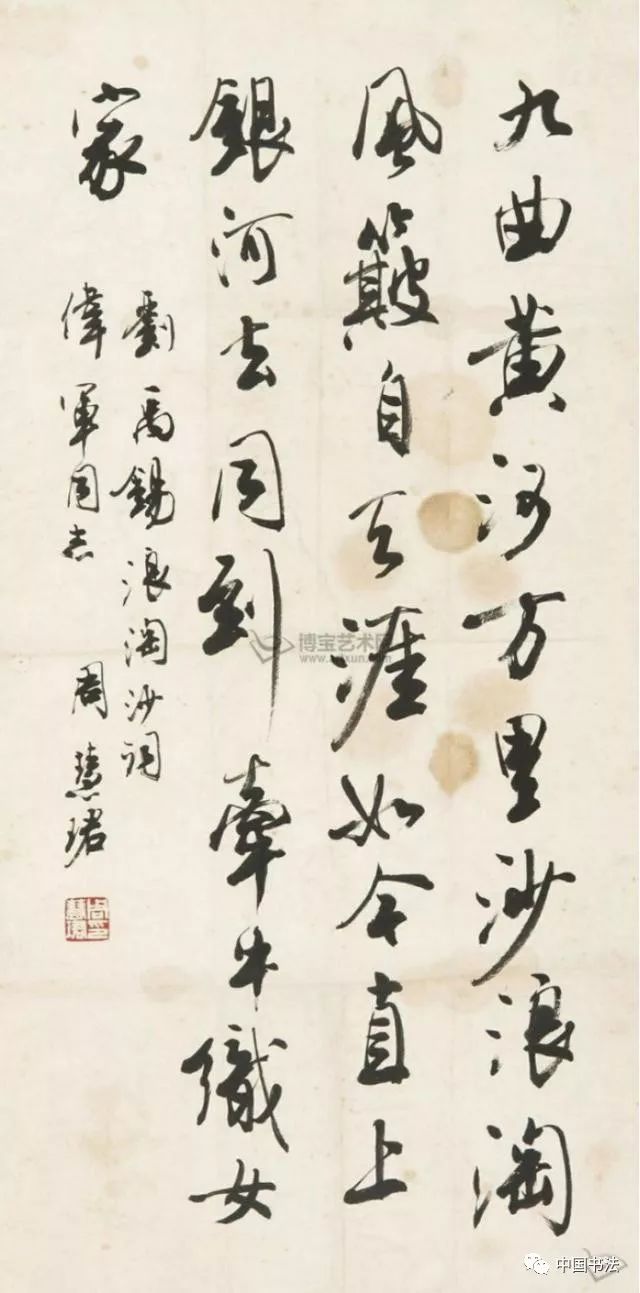 九曲黃河万里沙浪淘
風簸自天涯如今直上
銀河去同到牽牛織女
家
劉禹錫浪淘沙詞
偉軍同志 周慧珺
周慧珺印
博宝艺术网
中国书法